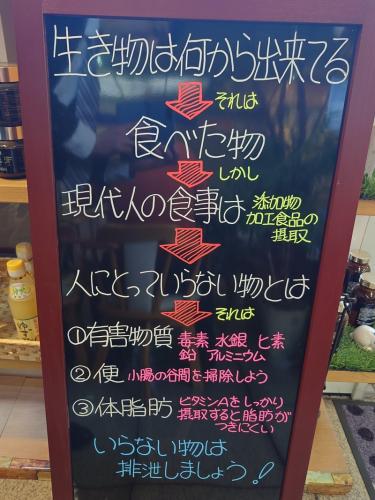 生き物は何から出来てる
それは
食べた物
しかし
現代人の食事は 添加物
加工食品の
摂取
人にとっていらない物とは
それは
①有害物質 毒素 水銀 ヒ素
鉛 アルミニウム
②便 小腸の谷間を掃除しよう
③体脂肪 ビタミンAをしっかり
摂取すると脂肪が
つきにくい
いらない物は
排泄しましょう!
ゆず